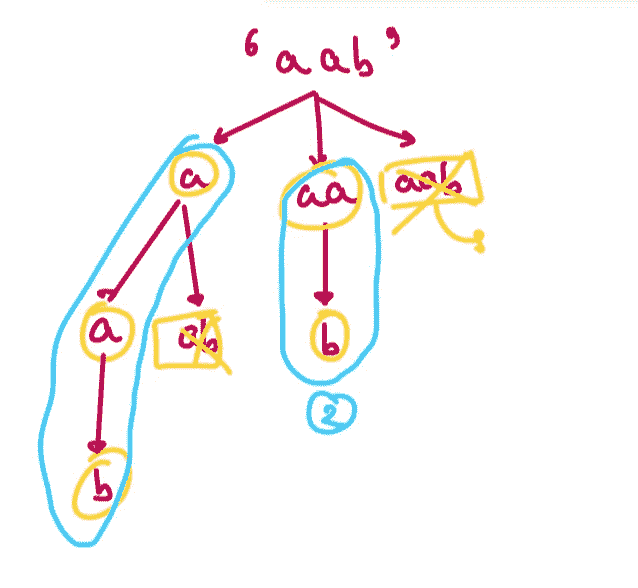 'aab'
a aa aab
a ab b
2
b